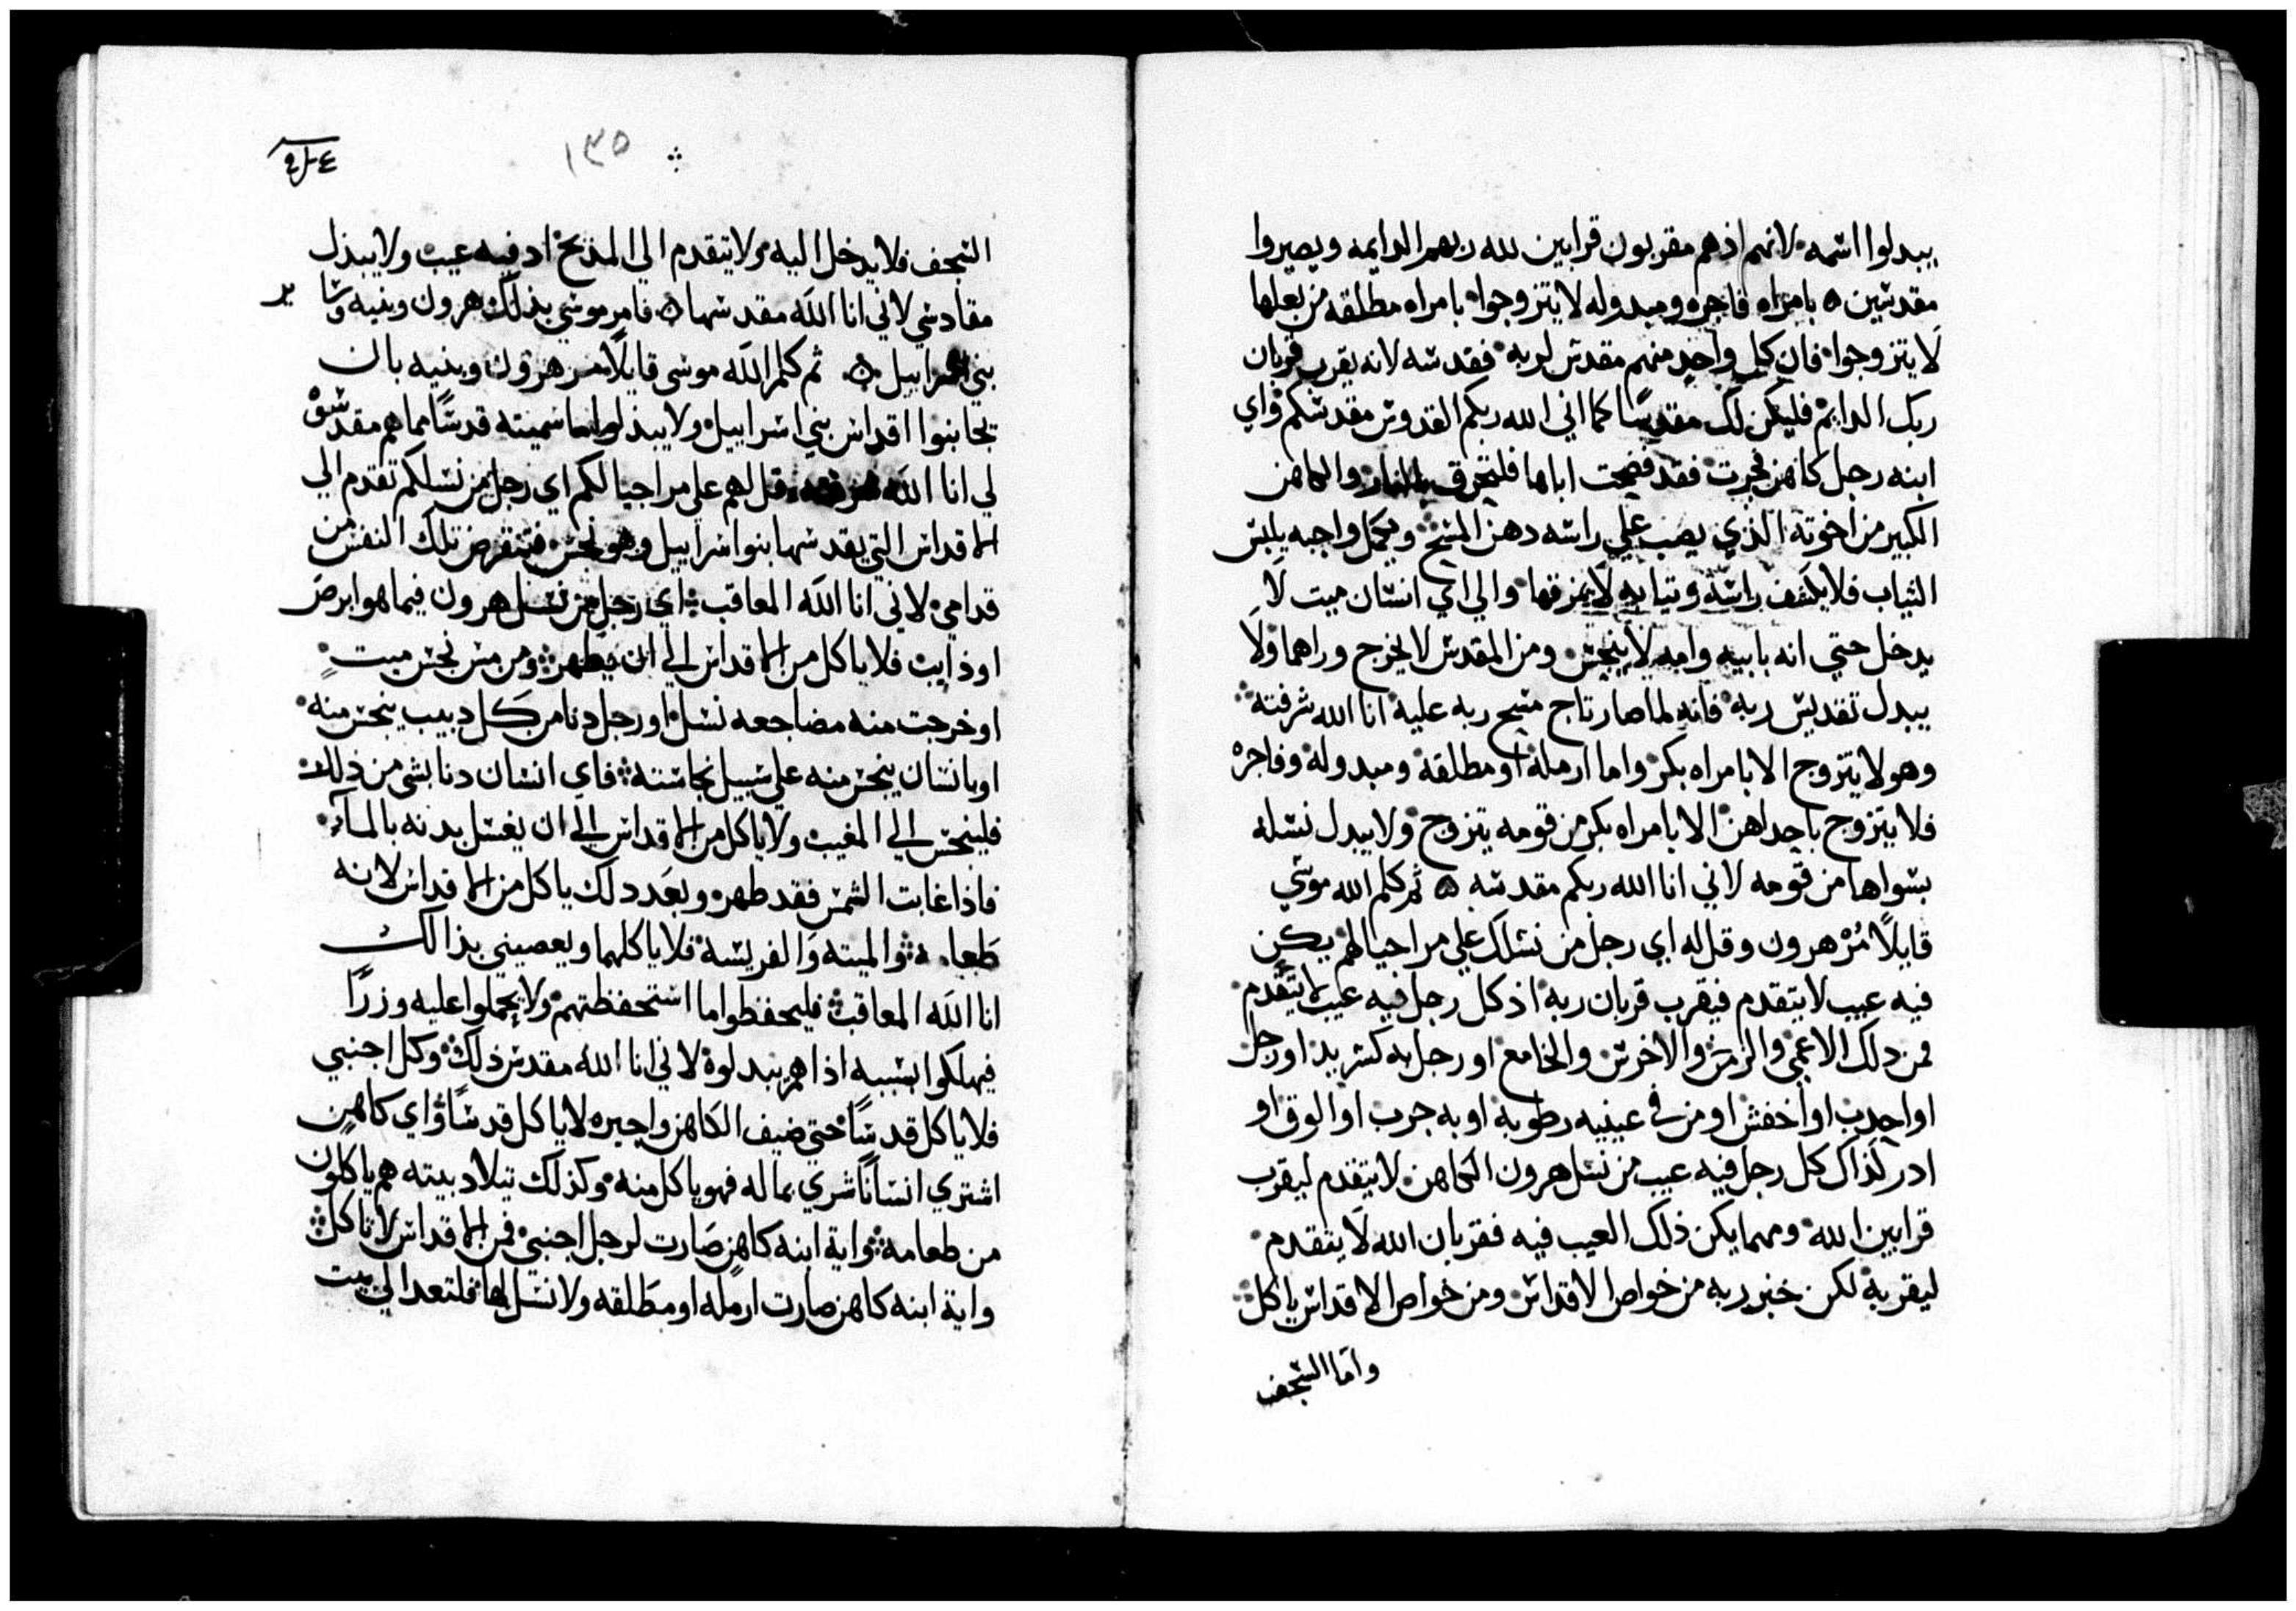 يبدلوا اسمه لانهم اذ هم مقربون قرابين لله ربهم الدايمه ويصيروا
مقدسين ٥ بامراه فاجره ومبدوله لا يتزوجوا بامراه مطلقه من بعلها
لا يتزوجوا فان كل واحد منهم مقدس لربه فقدسه لانه يقرب قربان
ربك الدايم فليكن لك مقدسا كما اني الله ربكم القدوس مقدسكم واي
ابنه رجل كاهن فجرت فقد فضحت اباها فلتحرق بالنار والكاهن
الكبير من اخوته الذي يصب علي راسه دهن المسح ويكمل واجبه يلبس
الثياب فلا يكشف راسه وتيابه لا يمزقها والي اي انسان ميت لا
يدخل حتي انه بابيه وامه لا ينجس ومن المقدس لا يخرج وراهما ولا
يبدل تقديس ربه فانه لما صار تاج مسح ربه عليه انا الله شرفته
وهو لا يتزوج الا بامراه بكر واما ارمله او مطلقه ومبدوله وفاجره
فلا يتزوج باحداهن الا بامراه بكر من قومه يتزوج ولا يبدل نسله
بسواها من قومه لاني انا الله ربكم مقدسه ٥ ثم كلم الله موسي
قايلا مر هرون وقل له اي رجل من نسلك علي مر اجيالهم يكن
فيه عيب لا يتقدم فيقرب قربان ربه اذ كل رجل فيه عيب لا يتقدم
فمن دلك الاعمي والزمن والاخرس والخامع او رجل به كسر يد او رجل
او احدب او اخفش او من في عينيه رطوبه او به جرب او الوق او
ادر كذاك كل رجل فيه عيب من نسل هرون الكاهن لا يتقدم ليقرب
قرابين الله ومهما يكن ذلك العيب فيه فقربان الله لا يتقدم
ليقربه لكن خبز ربه من خواص الاقداس ومن خواص الاقداس ياكل
واما السجف
١٣٥
السجف فلا يدخل اليه ولا يتقدم الي المذبح اد فيه عيب ولا يبذل
مقادسي لاني انا الله مقدسها ٥ فامر موسي بذلك هرون وبنيه وسا ير
بني اسراييل ٥ ثم كلم الله موسي قايلا مر هرون وبنيه بان
يجانبوا اقداس بني اسراييل ولا يبذلوا اسميته قدسا مما هم مقدسوه
لي انا الله قل لهم علي مر اجيالكم اي رجل من نسلكم تقدم الي
الاقداس التي يقدسها بنو اسراييل وهو نجس فتنقرض تلك النفس من
قدامي لاني انا الله المعاقب اي رجل من نسل هرون فيما هو ابرص
او ذايب فلا ياكل من الاقداس الي ان يطهر ومن مس نجس ميت
او خرجت منه مضاجعه نسل او رجل دنا من كل دبيب ينجس منه
او بانسان ينجس منه علي سبيل نجاسته فاي انسان دنا بشي من ذلك
فلينجس الي المغيب ولا ياكل من الاقداس الي ان يغسل بدنه بالماء
فاذا غابت الشمس فقد طهر وبعد دلك ياكل من الاقداس لانه
طعامه والميته والفريسه فلا ياكلهما ويعصيني بذالك
انا الله المعاقب فليحفظوا ما استحفظتهم ولا يحملوا عليه وزرا
فيهلكوا بسببه اذا هم بدلوه لاني انا الله مقدس ذلك وكل اجنبي
فلا ياكل قدسا حتي ضيف الكاهن واجيره لا ياكل قدسا واي كاهن
اشتري انسانا شري بماله فهو ياكل منه وكذلك تيلاد بيته هم ياكلون
من طعامه واية ابنه كاهن صارت لرجل اجنبي فمن الاقداس لا تاكل
واية ابنه كاهن صارت ارمله او مطلقه ولا نسل لها فلتعد الي بيت